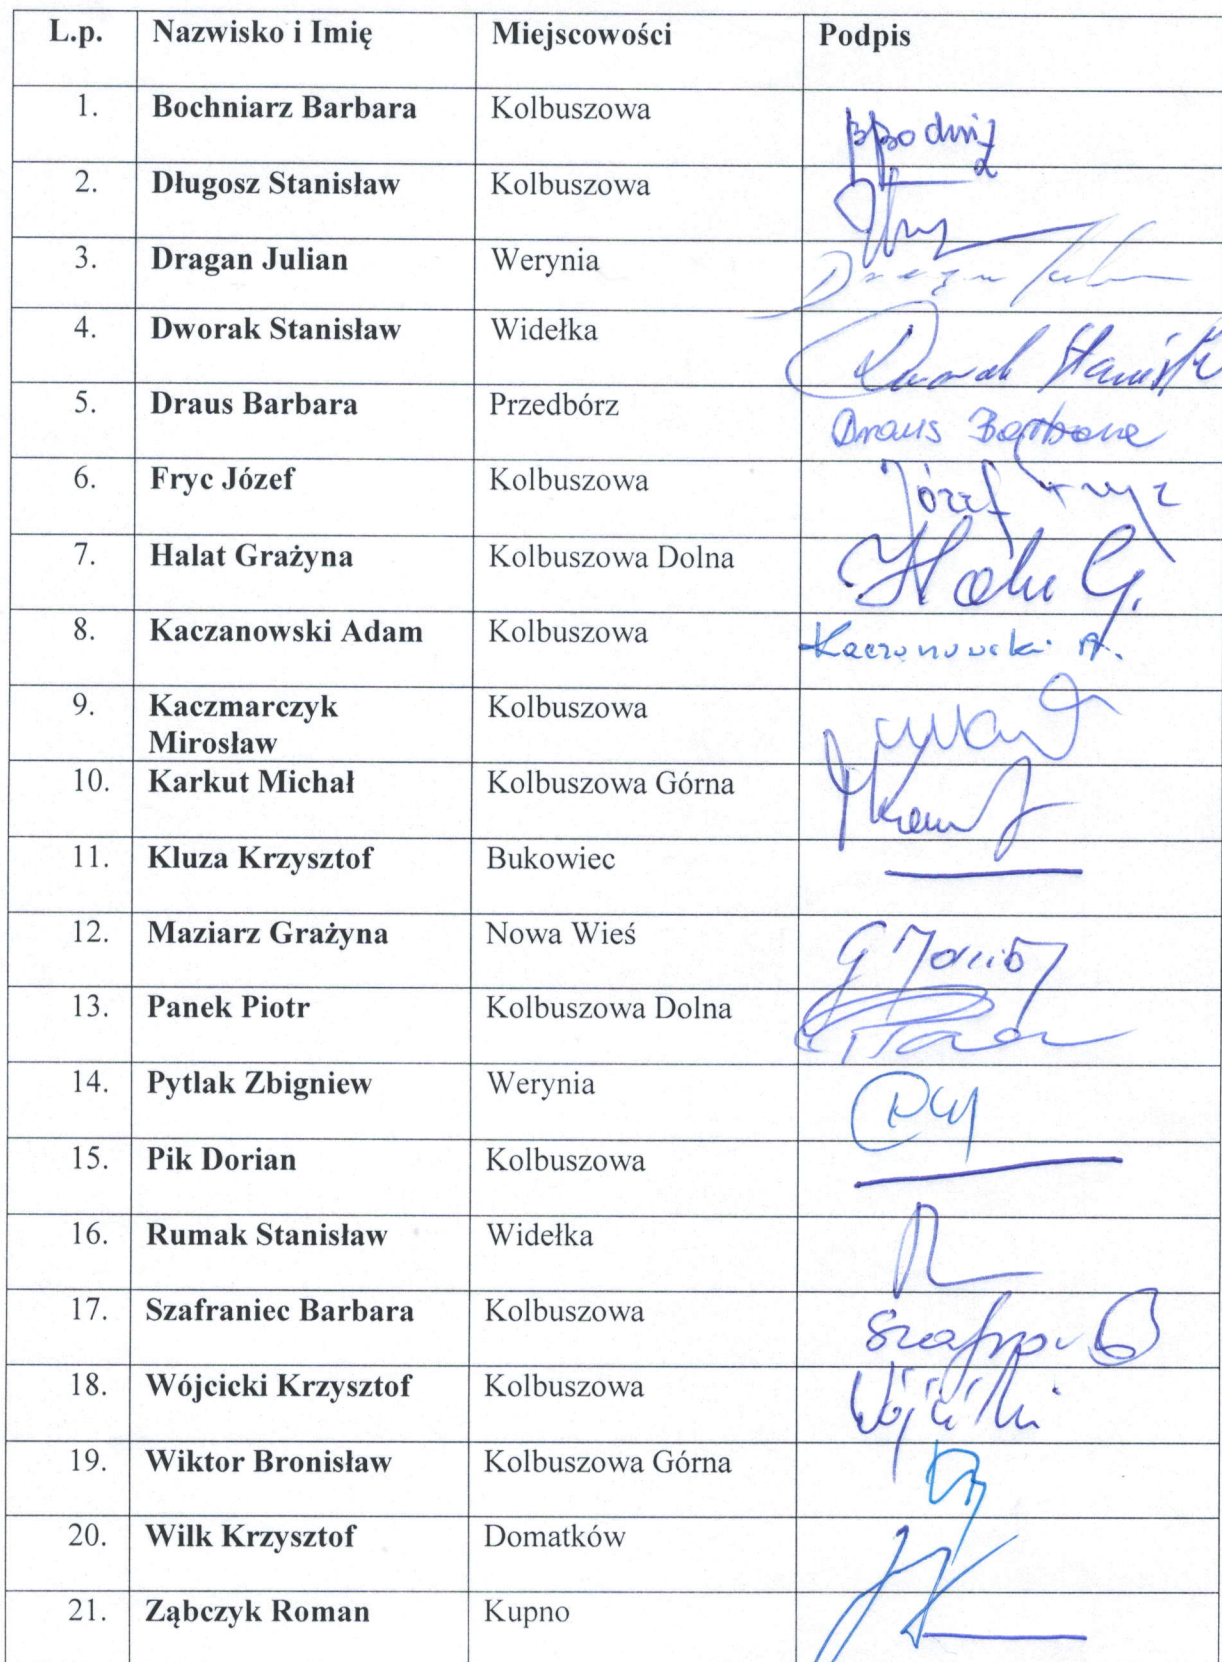 L.p. Nazwisko i Imię Miejscowości Podpis
1. Bochniarz Barbara Kolbuszowa
2. Długosz Stanisław Kolbuszowa
3. Dragan Julian Werynia Dragan Julian
4. Dworak Stanisław Widełka Dworak Stanisł
5. Draus Barbara Przedbórz Draus Barbara
6. Fryc Józef Kolbuszowa Józef Fryc
7. Halat Grażyna Kolbuszowa Dolna G.
8. Kaczanowski Adam Kolbuszowa Kaczanowski A.
9. Kaczmarczyk Kolbuszowa
Mirosław
10. Karkut Michał Kolbuszowa Górna
11. Kluza Krzysztof Bukowiec
12. Maziarz Grażyna Nowa Wieś
13. Panek Piotr Kolbuszowa Dolna
14. Pytlak Zbigniew Werynia
15. Pik Dorian Kolbuszowa
16. Rumak Stanisław Widełka
17. Szafraniec Barbara Kolbuszowa
18. Wójcicki Krzysztof Kolbuszowa Wójcicki
19. Wiktor Bronisław Kolbuszowa Górna
20. Wilk Krzysztof Domatków
21. Ząbczyk Roman Kupno